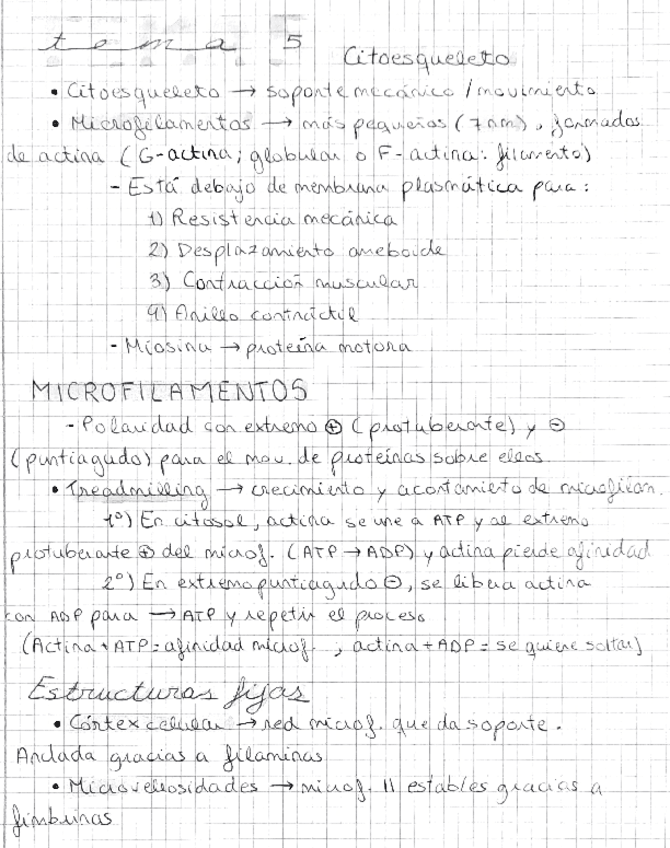 tema 5
Citoesqueleto
• Citoesqueleto → soporte mecánico / movimiento
• Microfilamentos → más pequeños (7nm), formados
de actina (G-actina; globular o F-actina: filamento)
- Está debajo de membrana plasmática para:
1) Resistencia mecánica
2) Desplazamiento ameboide
3) Contracción muscular
4) Anillo contráctil
- Miosina → proteína motora
MICROFILAMENTOS
- Polaridad con extremo ⊕ (protuberante) y ⊖
(puntiagudo) para el mov. de proteínas sobre ellos.
• Treadmilling → crecimiento y acortamiento de microfilam.
1º) En citosol, actina se une a ATP y al extremo
protuberante ⊕ del microf. (ATP → ADP) y actina pierde afinidad
2º) En extremo puntiagudo ⊖, se libera actina
con ADP para → ATP y repetir el proceso
(Actina + ATP = afinidad microf. ; actina + ADP = se quiere soltar)
Estructuras fijas
• Córtex celular → red microf. que da soporte.
Anclada gracias a filaminas
• Microvellosidades → microf. || estables gracias a
fimbrinas